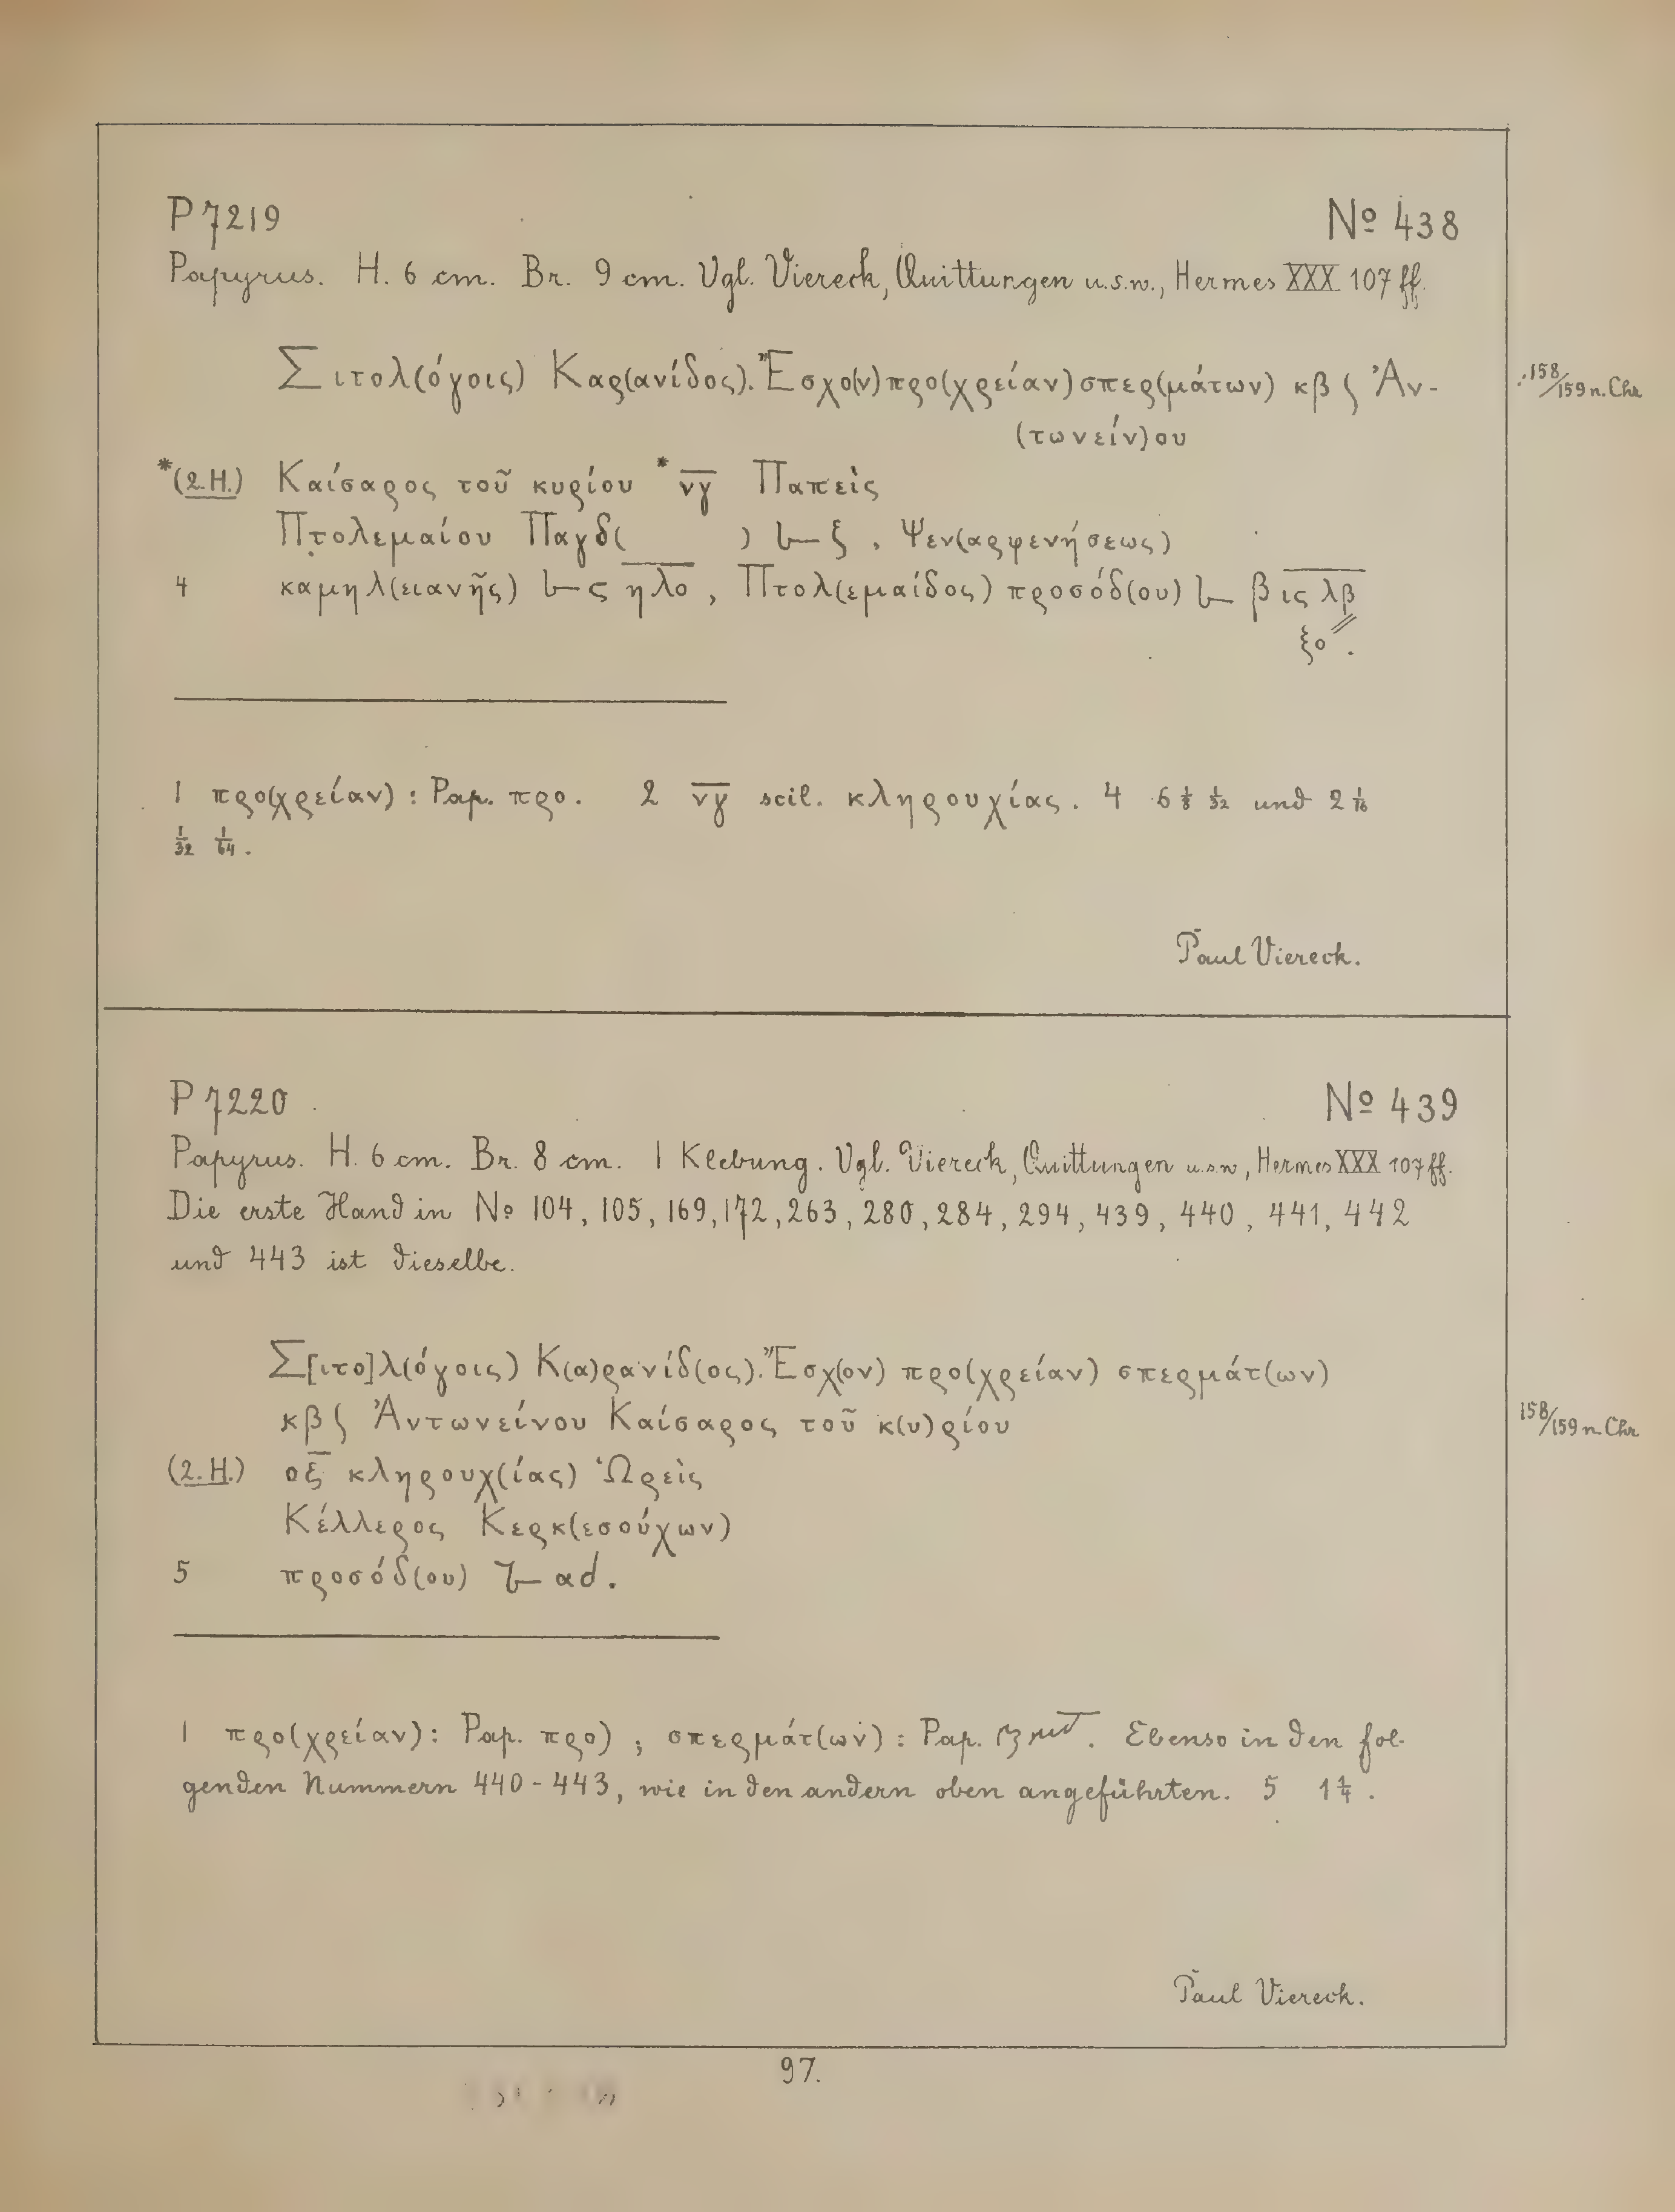 P 7219 № 438
Papyrus. H. 6 cm. Br. 9 cm. Vgl. Viereck, Quittungen u.s.w., Hermes XXX 107 ff.
Σιτολ(όγοις) Καρ(ανίδος). Ἔσχο(ν) προ(χρείαν) σπερ(μάτων) κβ ʃ Ἀν-
:158/159 n. Chr
(τωνείν)ου
*(2. H.) Καίσαρος τοῦ κυρίου * ν̅γ̅ Παπεὶς
Πτολεμαίου Παγδ( ) ξ, Ψεν(αρψενήσεως)
4 καμηλ(ειανῆς) ϛ η̅λ̅ο̅, Πτολ(εμαίδος) προσόδ(ου) β ι̅ς̅ λ̅β̅
ξο″.
1 προ(χρείαν): Pap. προ. 2 ν̅γ̅ scil. κληρουχίας. 4 6 1/8 1/32 und 2 1/16
1/32 1/64.
Paul Viereck.
P 7220 № 439
Papyrus. H. 6 cm. Br. 8 cm. 1 Klebung. Vgl. Viereck, Quittungen u.s.w, Hermes XXX 107 ff.
Die erste Hand in № 104, 105, 169, 172, 263, 280, 284, 294, 439, 440, 441, 442
und 443 ist dieselbe.
Σ[ιτο]λ(όγοις) Κ(α)ρανίδ(ος). Ἔσχ(ον) προ(χρείαν) σπερμάτ(ων)
κβ ʃ Ἀντωνείνου Καίσαρος τοῦ κ(υ)ρίου
158/159 n. Chr
(2. H.) ο̅ξ̅ κληρουχ(ίας) Ὡρεὶς
Κέλλερος Κερκ(εσούχων)
5 προσόδ(ου) αd.
1 προ(χρείαν): Pap. προ) ; σπερμάτ(ων): Pap. . Ebenso in den fol-
genden Nummern 440-443, wie in den andern oben angeführten. 5 1 1/4.
Paul Viereck.
97.